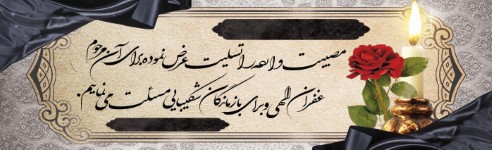 مصیبت وارده را تسلیت عرض نموده برای آن مرحوم
غفران الهی و برای بازماندگان شکیبایی مسئلت می نماییم.